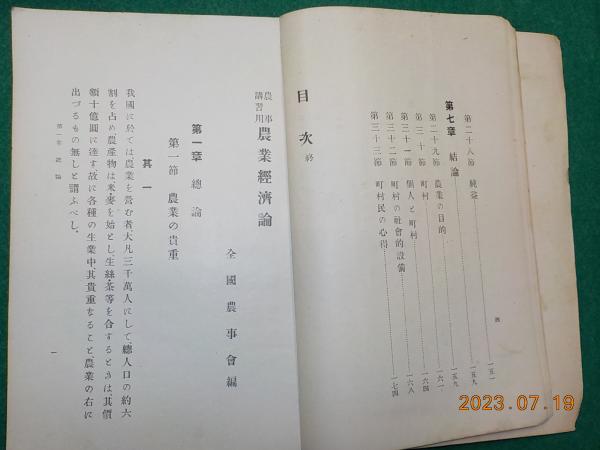 第二十八節 純益 一五一
第七章 結論 一五九
第二十九節 農業の目的 一五九
第三十節 町村 一六一
第三十一節 個人と町村 一六四
第三十二節 町村の社會的設備 一六八
第三十三節 町村民の心得 一七四
目次 終
四
農事講習用 農業經濟論
全國農事會編
第一章 總論
第一節 農業の貴重
其一
我國に於ては農業を營む者大凡三千萬人にして、總人口の約六
割を占め、農產物は米麥を始とし、生絲茶等を合するときは其價
額十億圓に達す、故に各種の生業中、其貴重なること農業の右に
出づるもの無しと謂ふべし。
第一章 總論
一
2023.07.19